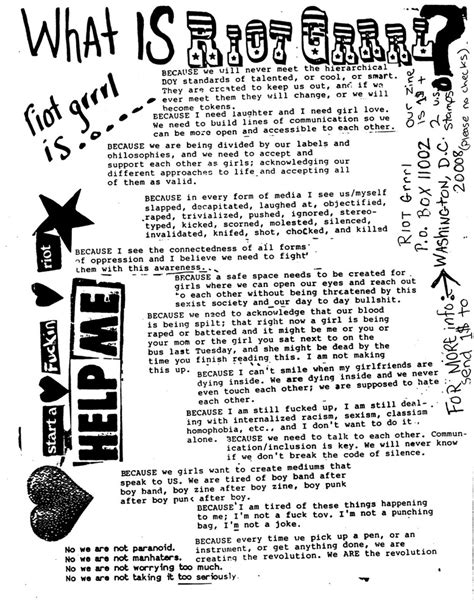 WHAT IS RIOT GRRRL?
riot grrrl
is......
BECAUSE we will never meet the hierarchical
BOY standards of talented, or cool, or smart.
They are created to keep us out, and if we
ever meet them they will change, or we will
become tokens.
BECAUSE I need laughter and I need girl love.
We need to build lines of communication so we
can be more open and accessible to each other.
BECAUSE we are being divided by our labels and
philosophies, and we need to accept and
support each other as girls; acknowledging our
different approaches to life and accepting all
of them as valid.
BECAUSE in every form of media I see us/myself
slapped, decapitated, laughed at, objectified,
raped, trivialized, pushed, ignored, stereo-
typed, kicked, scorned, molested, silenced,
invalidated, knifed, shot, chocked, and killed
BECAUSE I see the connectedness of all forms
of oppression and I believe we need to fight
them with this awareness.
BECAUSE a safe space needs to be created for
girls where we can open our eyes and reach out
to each other without being threatened by this
sexist society and our day to day bullshit.
BECAUSE we need to acknowledge that our blood
is being spilt; that right now a girl is being
raped or battered and it might be me or you or
your mom or the girl you sat next to on the
bus last Tuesday, and she might be dead by the
time you finish reading this. I am not making
this up.
BECAUSE I can't smile when my girlfriends are
dying inside. We are dying inside and we never
even touch each other; we are supposed to hate
each other.
BECAUSE I am still fucked up, I am still deal-
ing with internalized racism, sexism, classism
homophobia, etc., and I don't want to do it
alone.
BECAUSE we need to talk to each other. Commun-
ication/inclusion is key. We will never know
if we don't break the code of silence.
BECAUSE we girls want to create mediums that
speak to US. We are tired of boy band after
boy band, boy zine after boy zine, boy punk
after boy punk after boy.
BECAUSE I am tired of these things happening
to me; I'm not a fuck toy. I'm not a punching
bag, I'm not a joke.
BECAUSE every time we pick up a pen, or an
instrument, or get anything done, we are
creating the revolution. We ARE the revolution
No we are not paranoid.
No we are not manhaters.
No we are not worrying too much.
No we are not taking it too seriously.
start a
fuckin
riot
HELP ME
FOR MORE info:
send 1$ to
RIOT Grrrl
P.O. BOX 11002
WASHINGTON, D.C.
20008
our zine
is 1$ +
2 us
stamps
(please no checks)